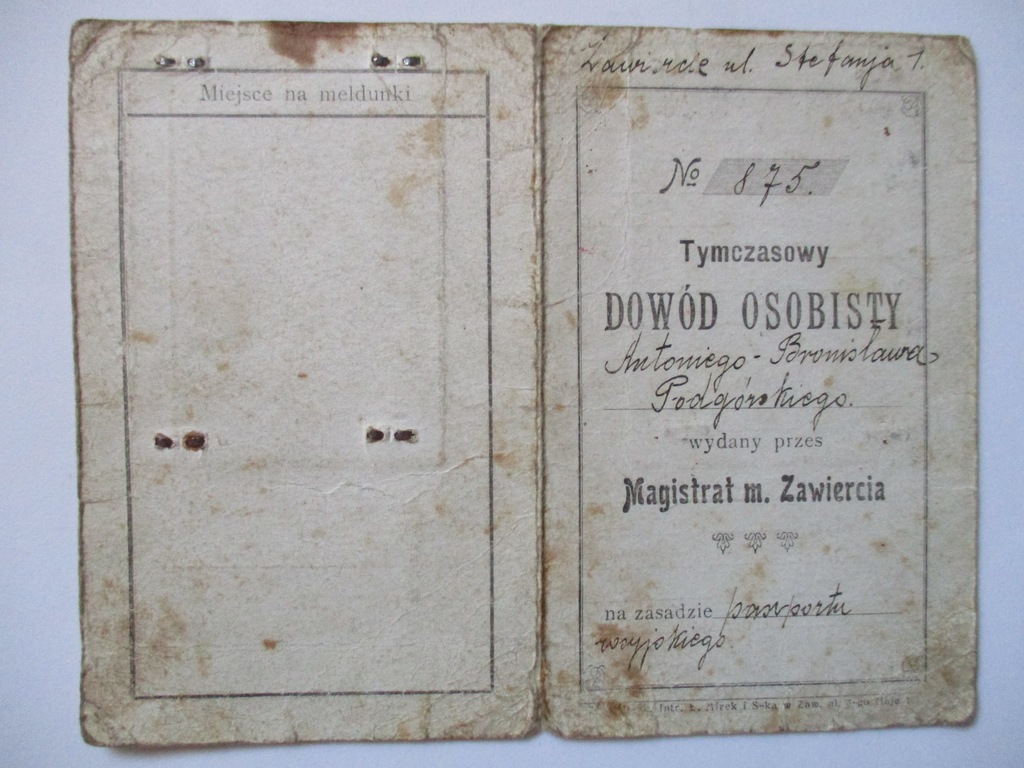 Miejsce na meldunki
Zawiercie ul. Stefanja 1.
№ 875.
Tymczasowy
DOWÓD OSOBISTY
Antoniego-Bronisława
Podgórskiego.
wydany przes
Magistrat m. Zawiercia
na zasadzie paszportu
rosyjskiego.
Mrek i S-ka w Zaw. ul. 3-go Maja